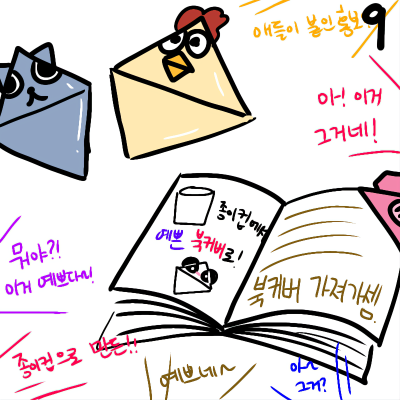 애들이 볼인 홍보 9
아! 이거
그거네!
종이컵에서
예쁜 북커버로!
북커버 가져가셈.
뭐야?!
이거 예쁘다니
종이컵으로 만든!!
예쁘네~
아~
그거?